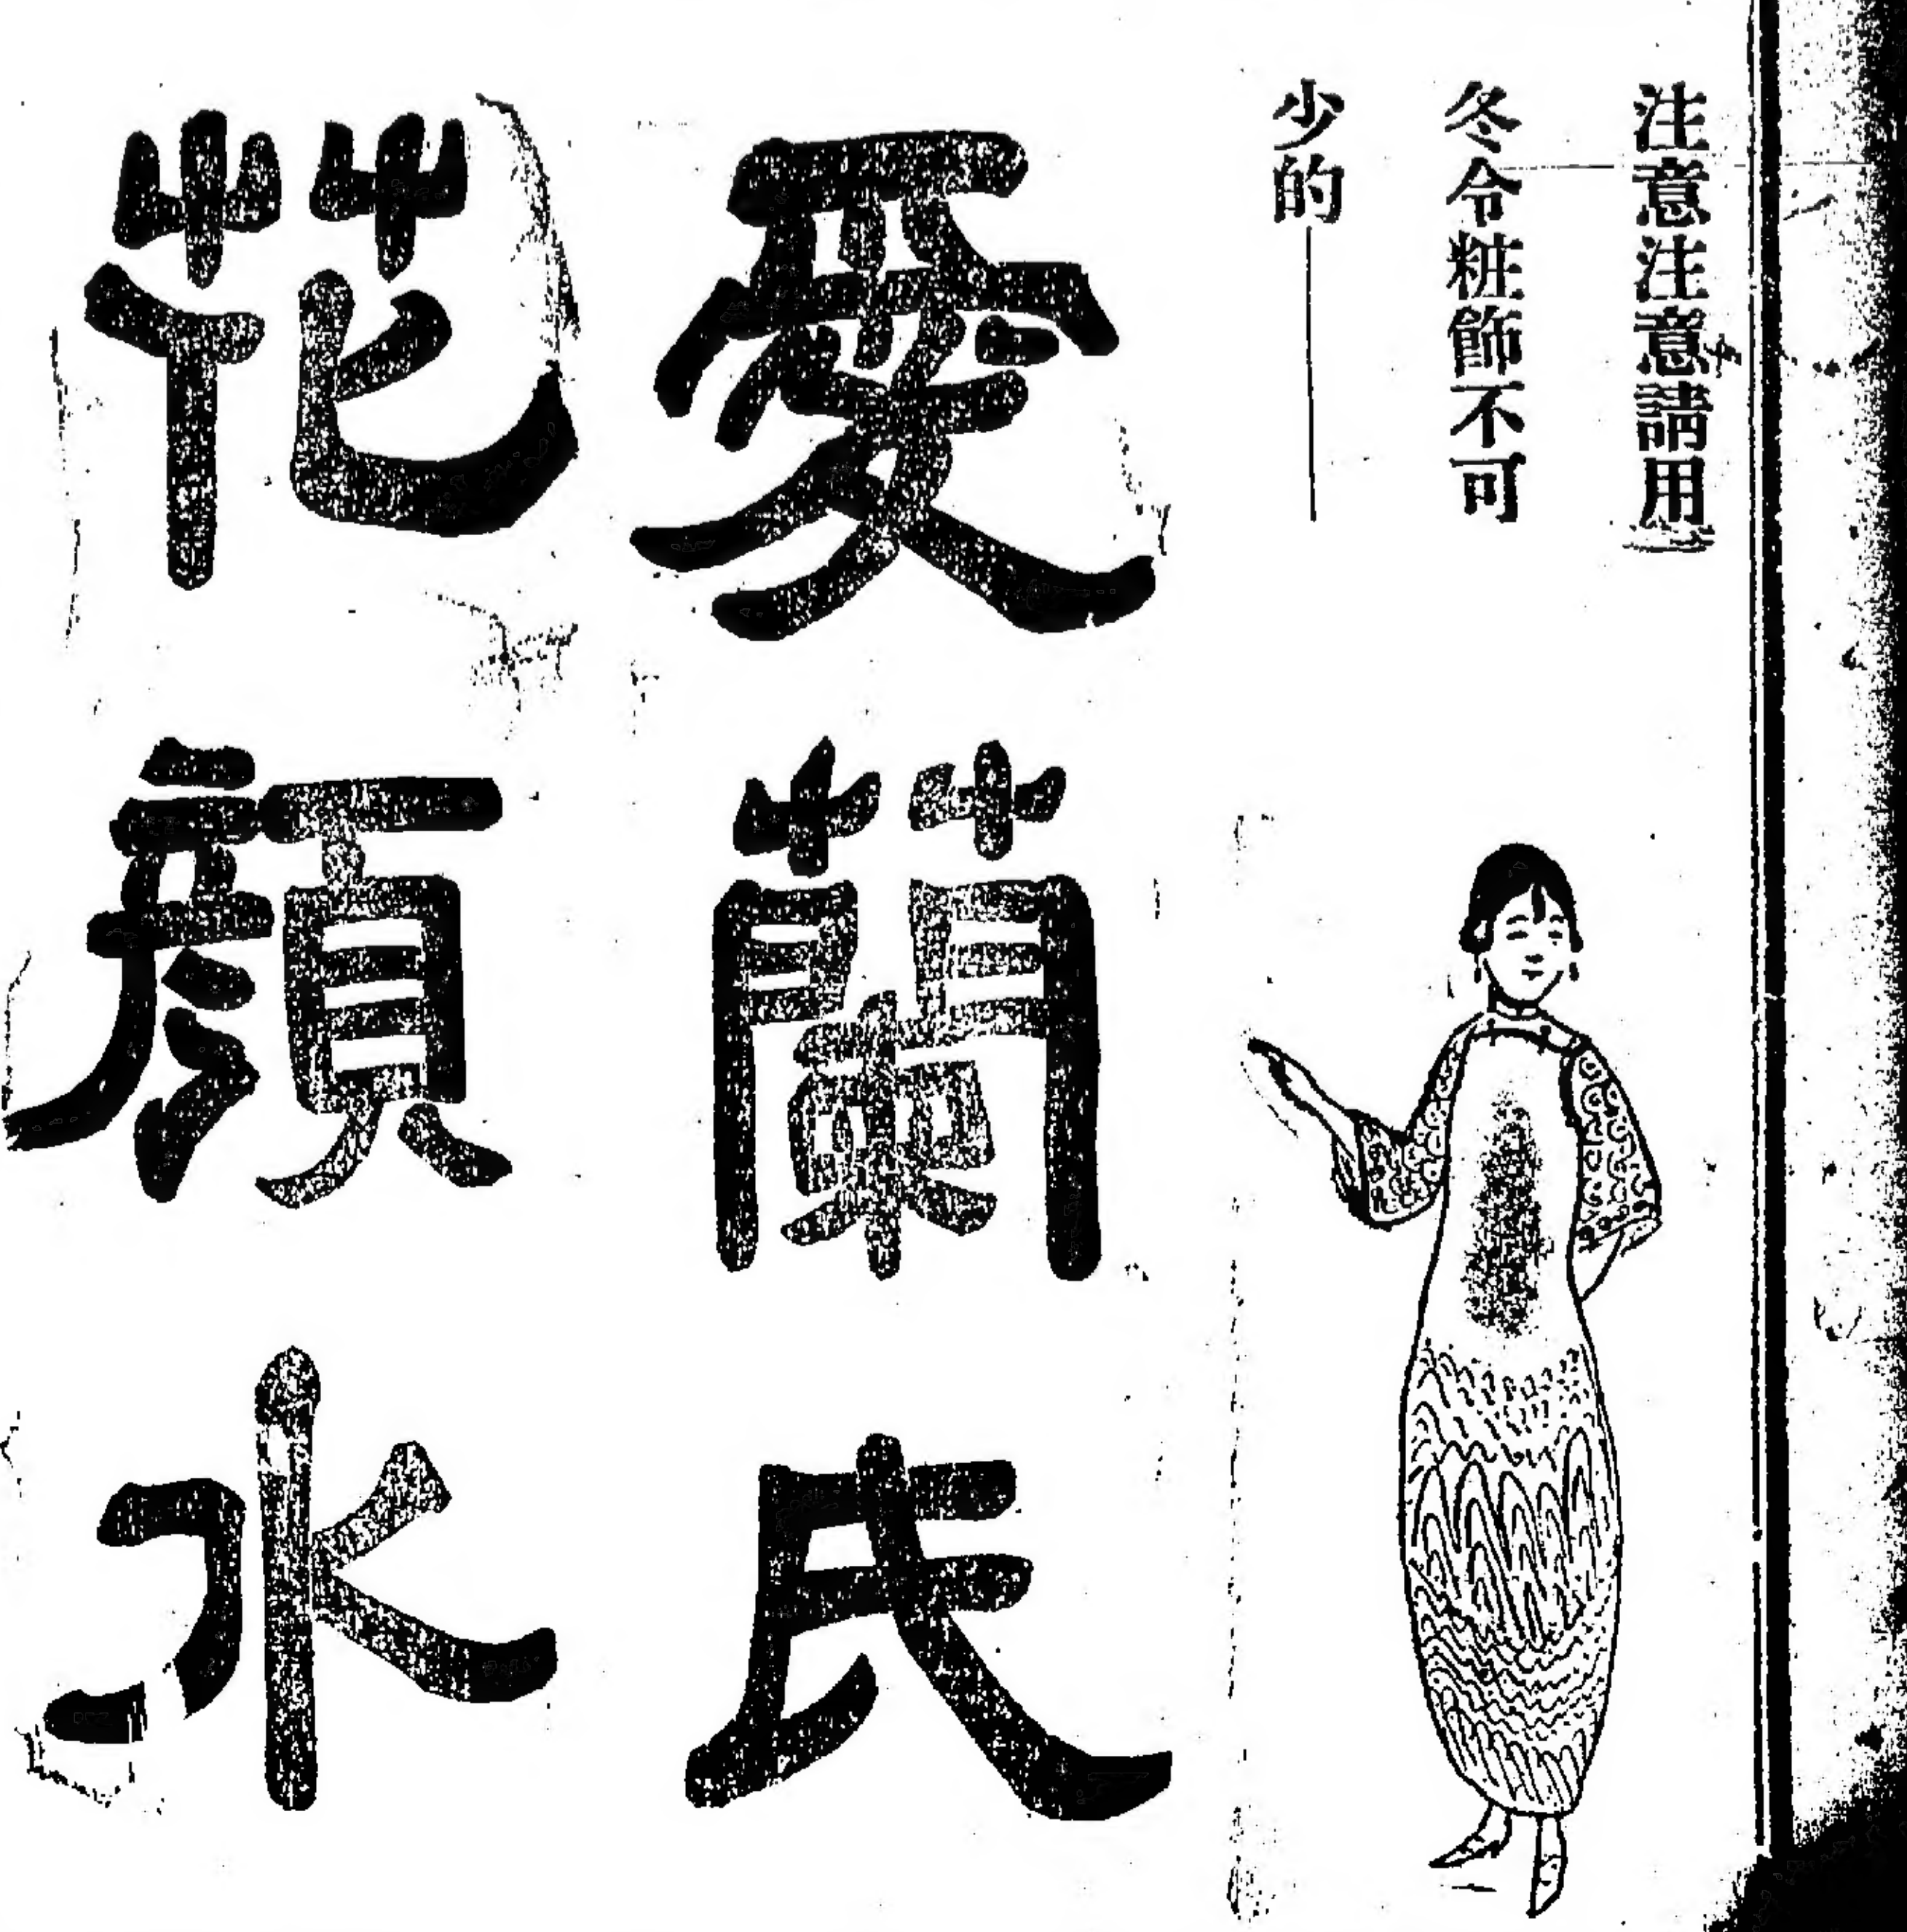 注意注意請用
冬令粧飾不可
少的——
愛蘭氏
花顏水